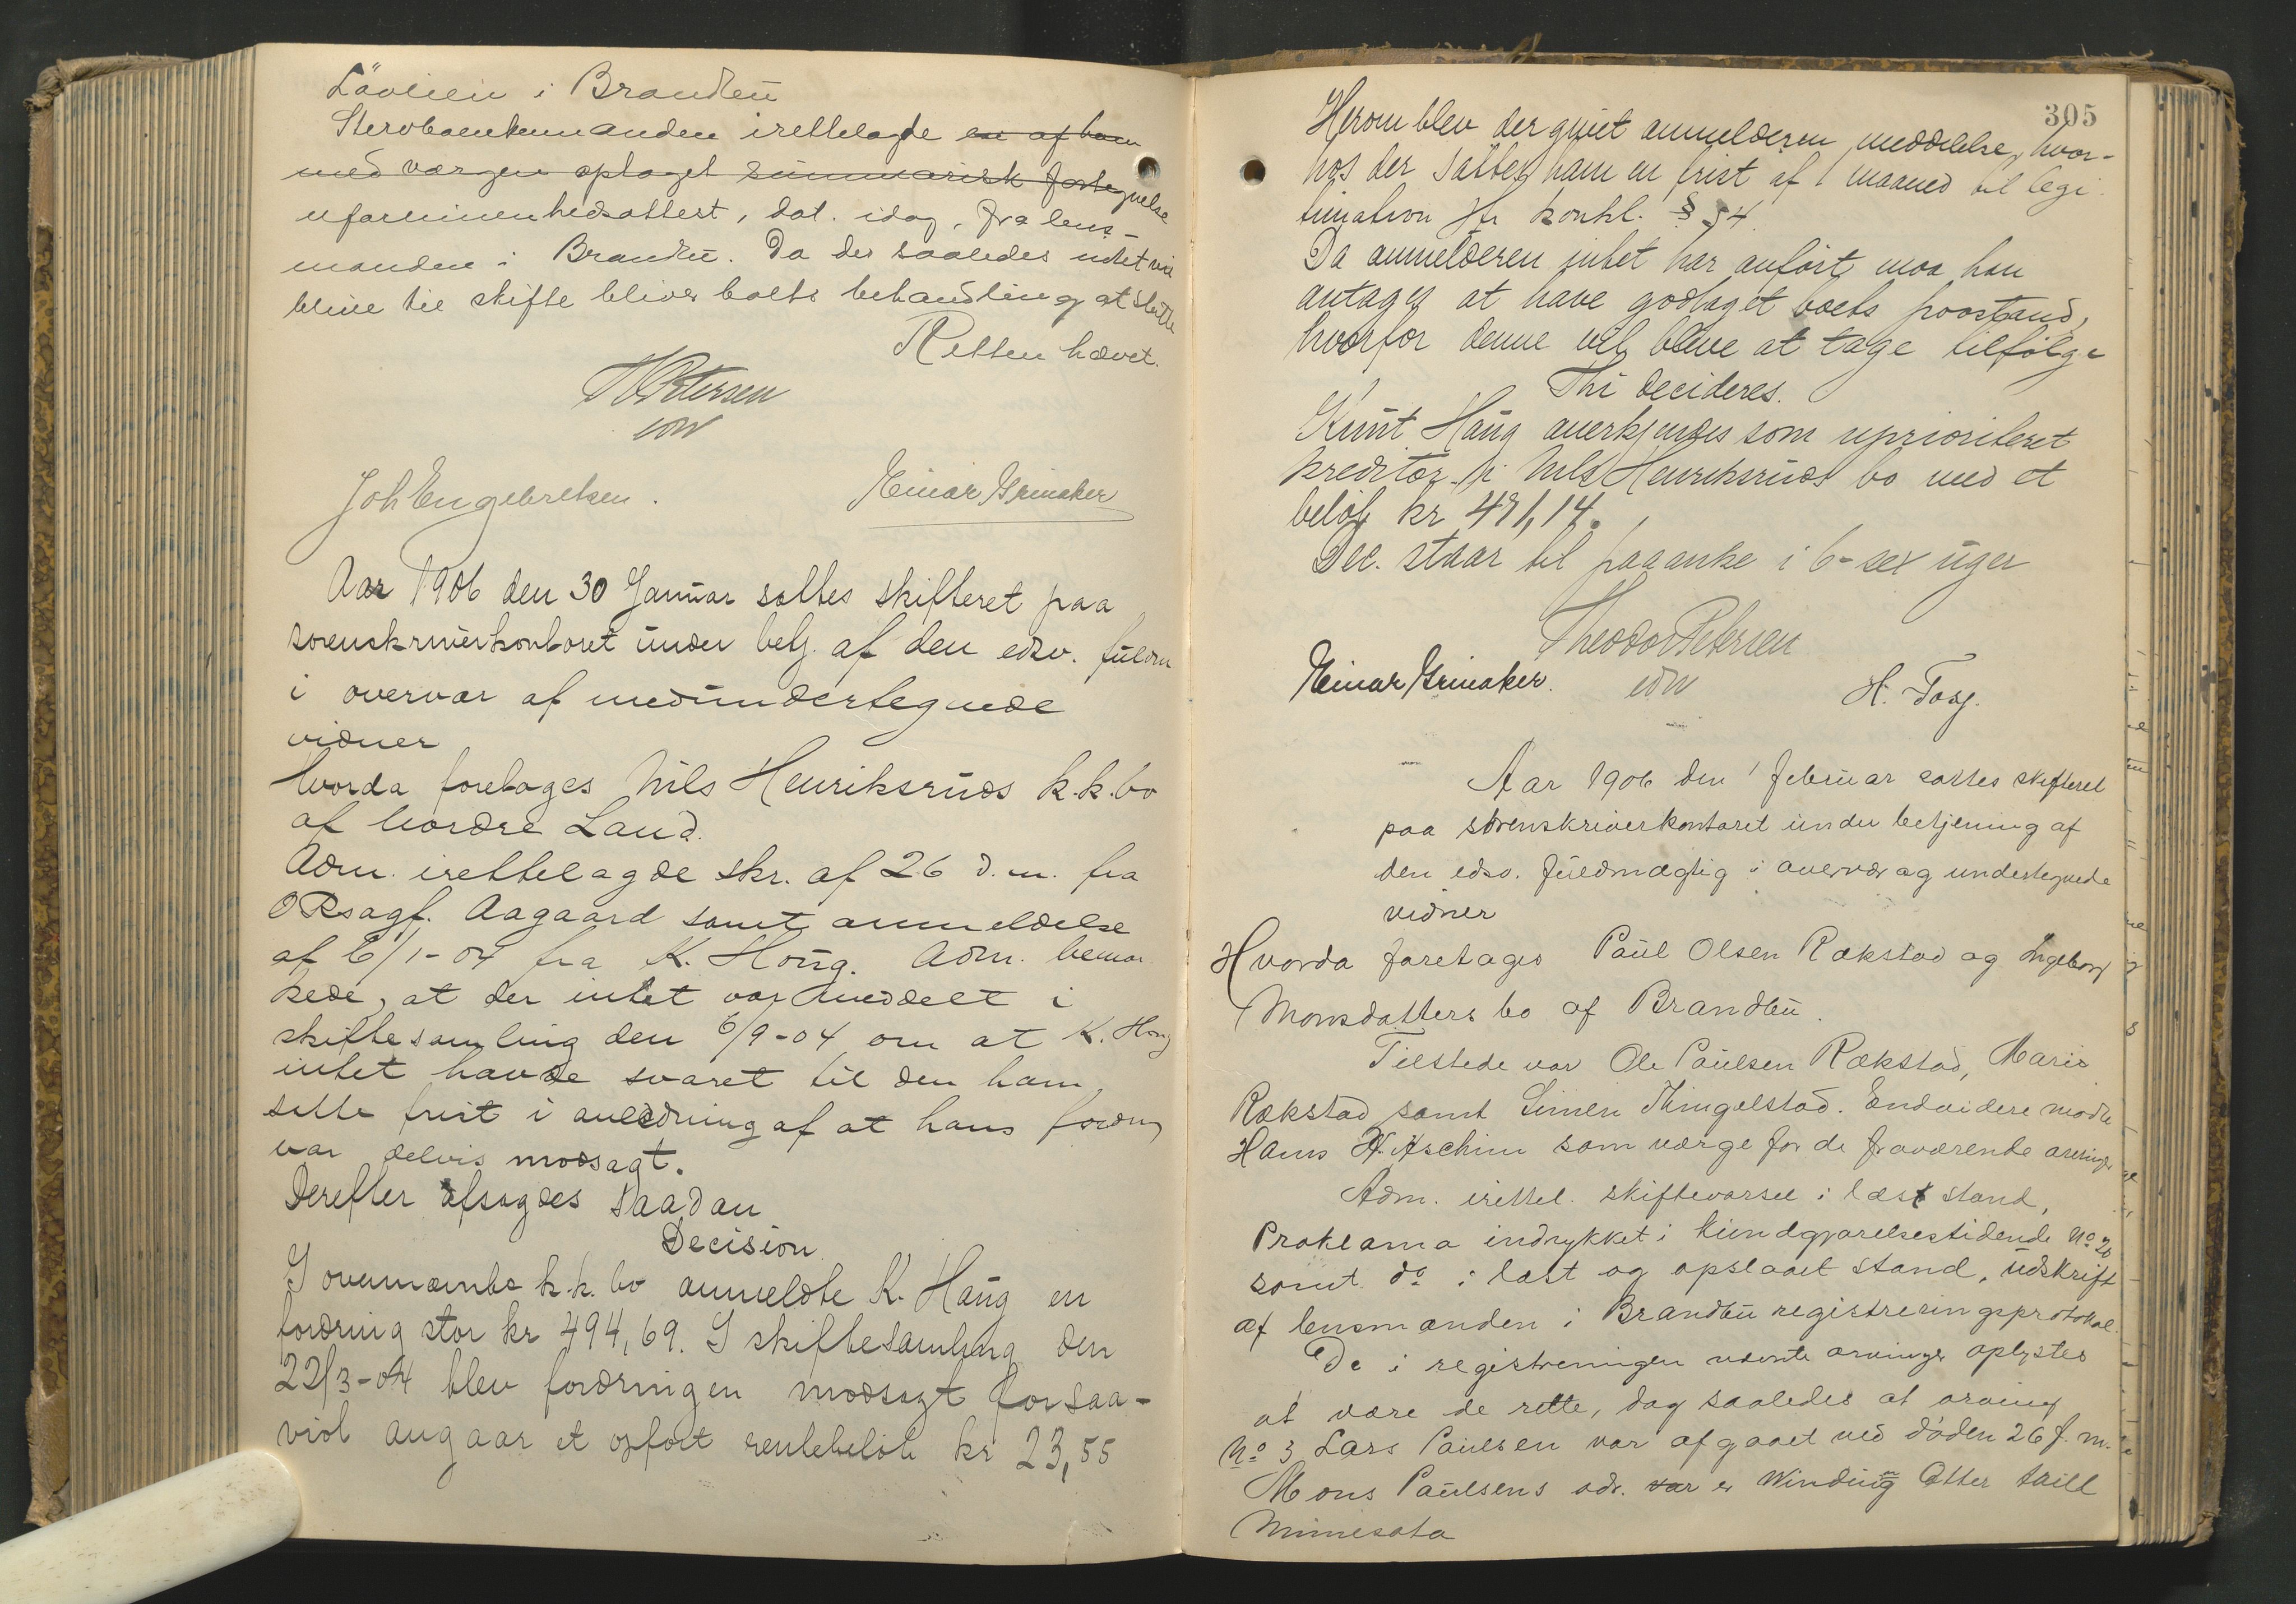 Lövlien i Brandbu
Stervboenkemanden irettelagde en af ham
med værgen optaget summarisk fortegnelse
uformuenhedsattest, dat. idag, fra lens-
manden i Brandbu. Da der saaledes intet vil
blive til skifte bliver boets behandling at slutte
Retten hævet.
Th Petersen
edsv
Joh Engebretsen.
Einar Grinaker
Aar 1906 den 30 Januar sattes skifteret paa
sorenskriverkontoret under betj. af den edsv. fuldm
i overvær af medundertegnede
vidner
Hvorda foretoges Nils Henriksruds k.k.bo
af Nordre Land.
Adm. irettelagde skr. af 26 d.m. fra
ORsagf. Aagaard samt anmeldelse
af 6/1-04 fra K. Haug. Adm. bemær
kede, at der intet var meddelt i
skiftesamling den 6/9-04 om at K. Haug
intet havde svaret til den ham
satte frist i anledning af at hans fordring
var delvis modsagt.
Derefter afsagdes saadan
Decision
I ovennævnte k.k. bo anmeldte K. Haug en
fordring stor kr 494,69. I skiftesamling den
22/3-04 blev fordringen modsagt forsaa-
vidt angaar et opført rentebeløb kr 23,55
305
Herom blev der givet anmelderen meddelelse, hvor-
hos der sattes ham en frist af 1 maaned til legi-
timation jfr konkl. § 54.
Da anmelderen intet har anført maa han
antages at have godtaget boets paastand,
hvorfor denne vil blive at tage tilfølge
Thi decideres.
Knut Haug anerkjendes som uprioriteret
kreditor i Nils Henriksruds bo med et
beløb kr 471,14.
Dec. staar til paaanke i 6-sex uger
Theodor Petersen
edsv
Einar Grinaker.
H.
Aar 1906 den 1 februar sattes skifteret
paa sorenskriverkontoret under betjening af
den edsv. fuldmægtig i overvær og undertegnede
vidner
Hvorda foretages Paul Olsen Rækstad og Ingeborg
Monsdatters bo af Brandbu.
Tilstede var Ole Paulsen Rækstad, Marie
Rækstad samt Simen Thingelstad. Endvidere mødte
Hans H. Aschim som værge for de fraværende arvinger
Adm. irettel. skiftevarsel i læst stand,
Proklama indrykket i Kundgjørelsestidende No 26
samt do i læst og opslaaet stand, udskrift
af lensmanden i Brandbu registreringsprotokol.
De i registreringen nævnte arvinger oplystes
at være de rette, dog saaledes at arving
No 3 Lars Paulsen var afgaaet ved döden 26 f. m.
Mons Paulsens adr. var er Winding Otter taill
Minnesota